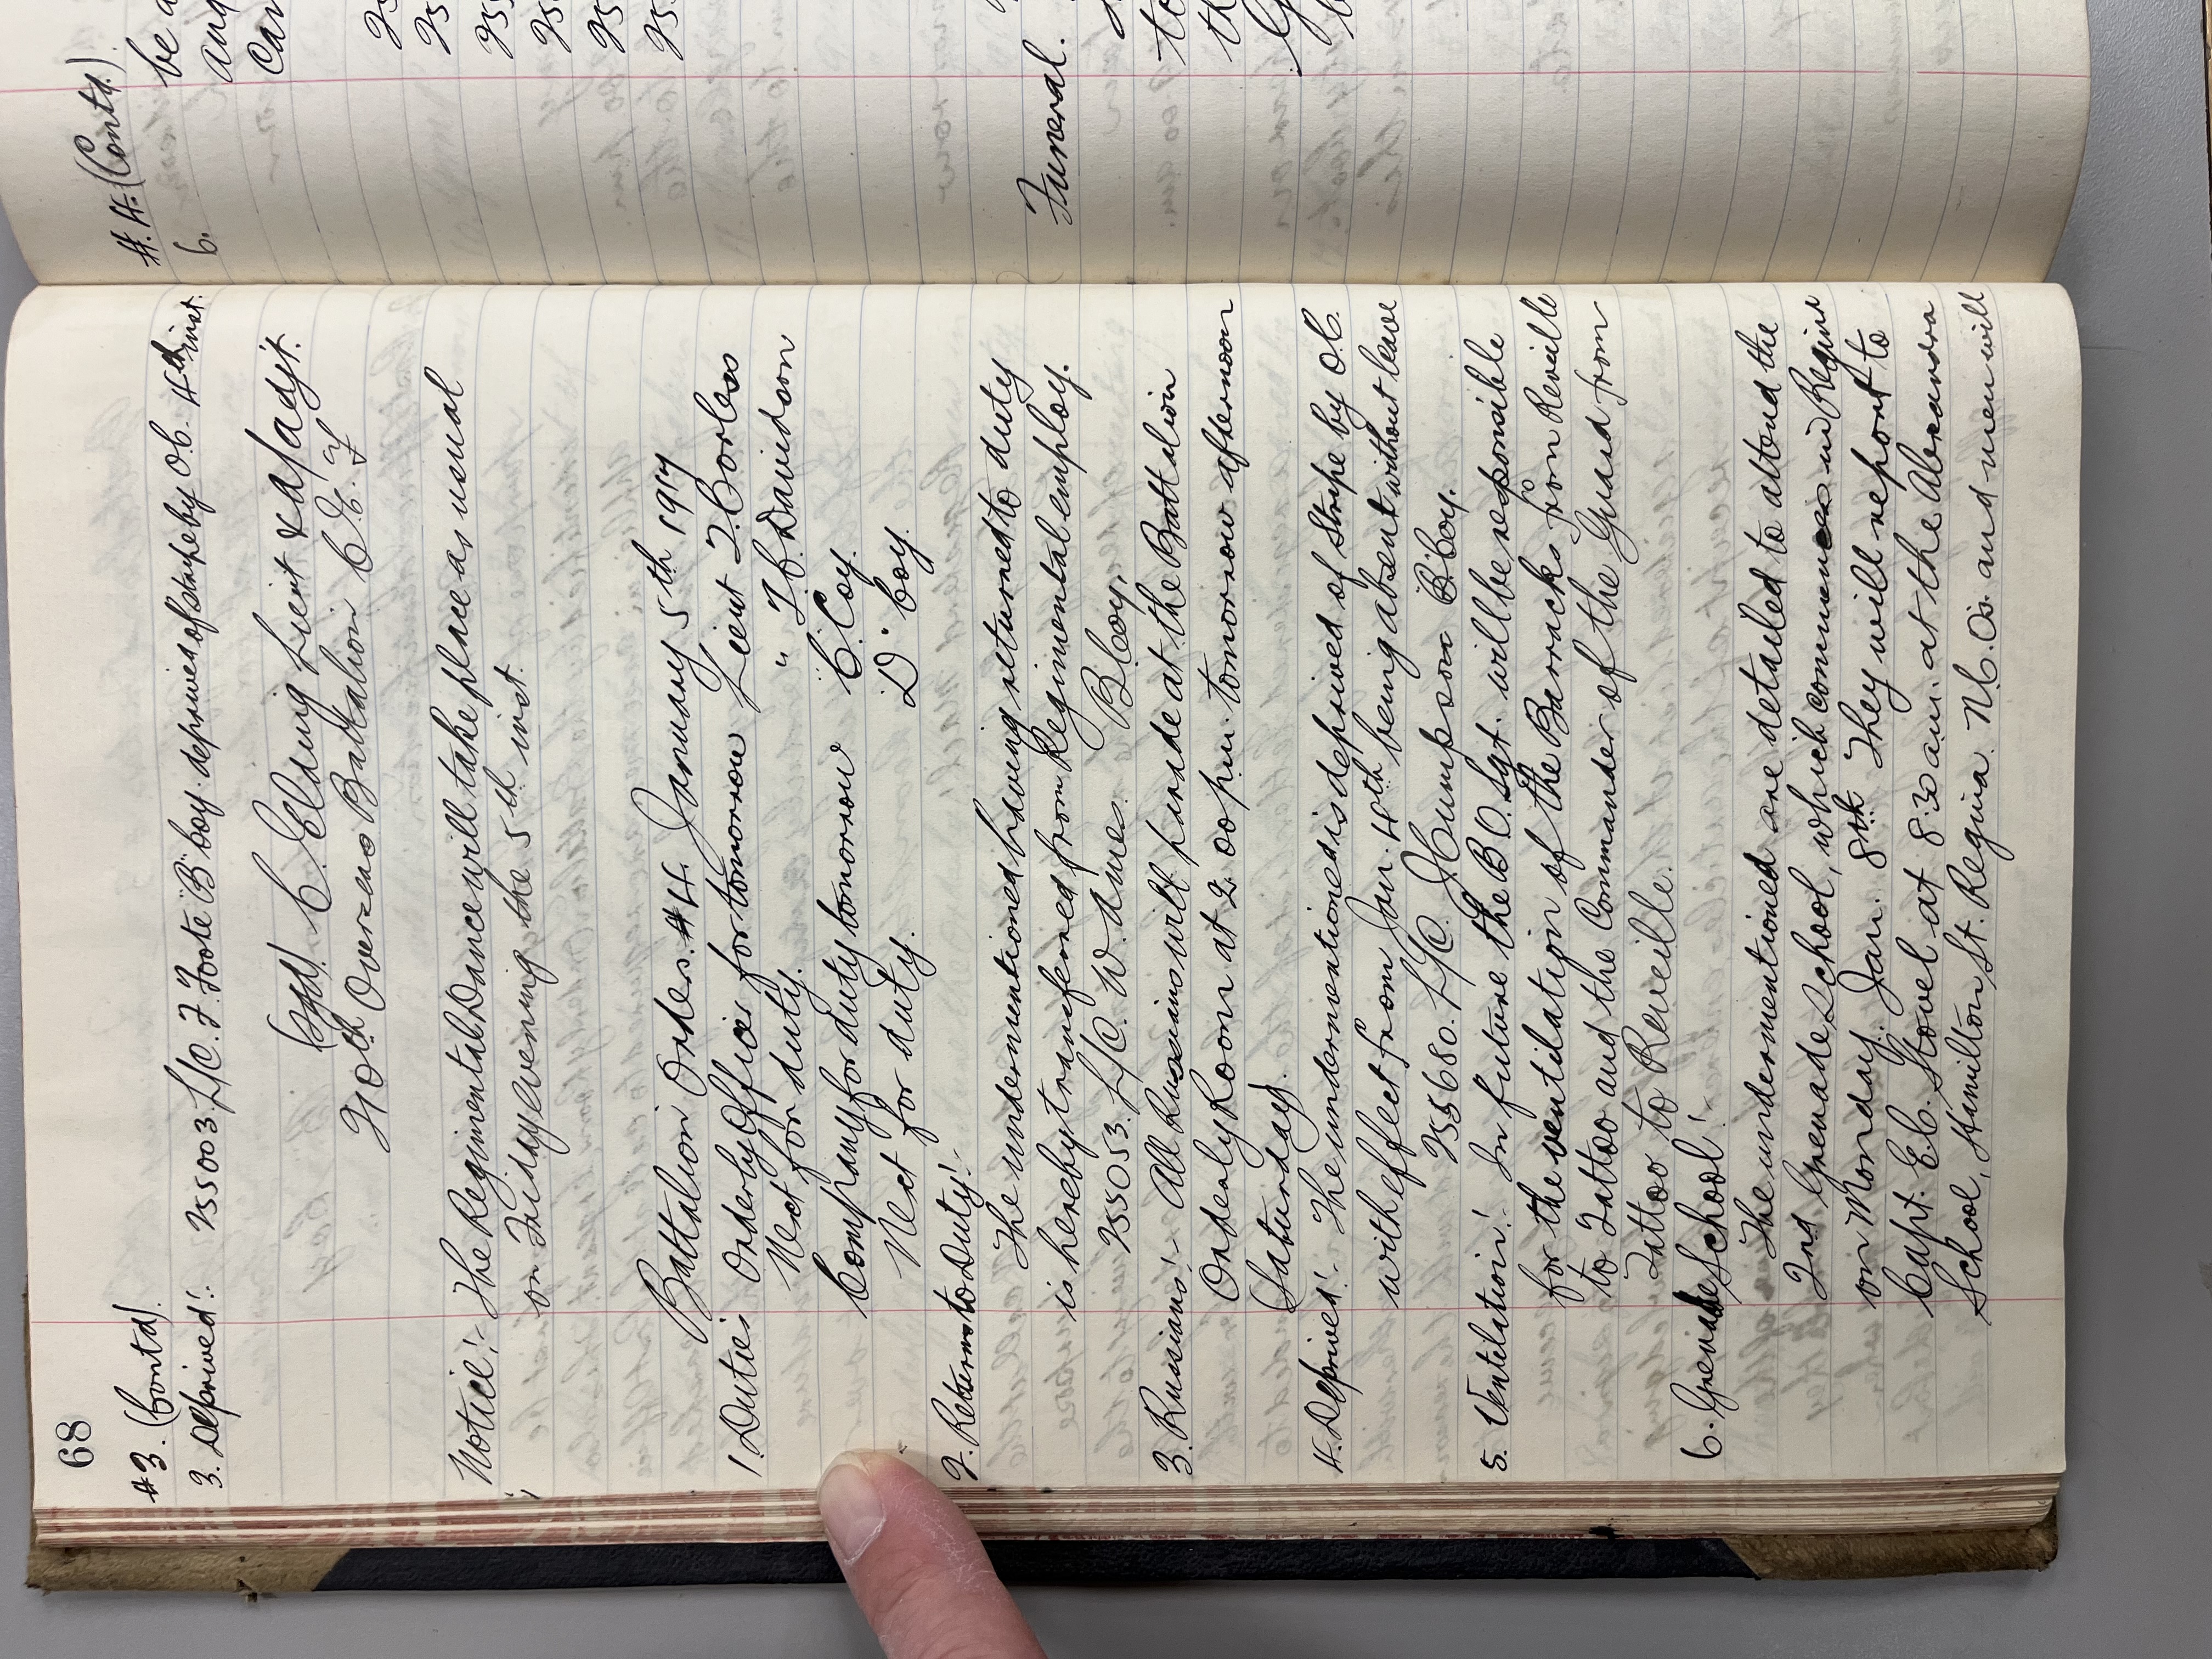 68
#3. (Contd).
3. Deprived:. 255003 L/C. F. Foote "B" Coy. deprived of stripe by O.C. 4th inst.
(sgd) C. Elding Lieut & a/adjt.
Overseas Battalion C.E.F.
Notice:- The Regimental Dance will take place as usual
on Friday evening the 5th inst.
Battalion Orders. #4. January 5th 1917
1. Duties Orderly Officer for tomorrow Lieut
Next for duty. " Davidson
Company for duty tomorrow "C" Coy.
Next for duty. "D" Coy.
2. Returns to Duty:-
The undermentioned having returned to duty
is hereby transferred from Regimental employ.
255053. L/C. W. Ames. B Coy.
3. Russians:- All Russians will parade at the Battalion
Orderly Room at 2.00 p.m. tomorrow afternoon
Saturday.
4. Deprived:- The undermentioned is deprived of Stripe by O.C.
with effect from Jan. 4th being absent without leave
255680. L/C. B. Coy.
5. Ventilation:- In future the B.O. Sgt. will be responsible
for the ventilation of the Barracks from Reveille
to Tattoo and the Commander of the Guard from
Tattoo to Reveille.
6. Grenade School:-
The undermentioned are detailed to attend the
2nd Grenade School, which commences in Regina
on Monday. Jan. 8th They will report to
Capt. E.C. Stovel at 8:30 a.m. at the Alexandra
School, Hamilton St. Regina. N.C.Os. and men will
#4. (Contd.)
6. be a
and
Can
25
25
255
25
25
25
Funeral.
to
th
G
b